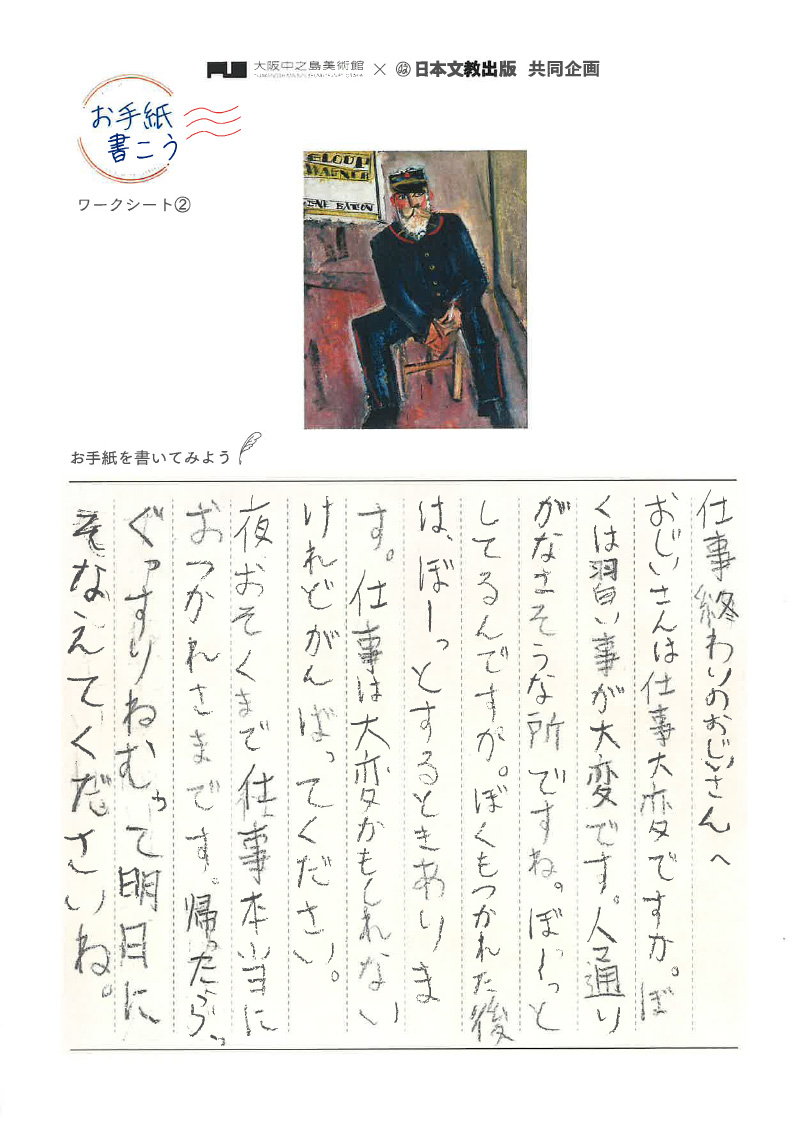 大阪中之島美術館 × 日本文教出版 共同企画
お手紙
書こう
ワークシート②
WAGNER
お手紙を書いてみよう
仕事終わりのおじいさんへ
おじいさんは仕事大変ですか。ぼ
くは習い事が大変です。人通り
がなさそうな所ですね。ぼーっと
してるんですか。ぼくもつかれた後
は、ぼーっとするときありま
す。仕事は大変かもしれない
けれどがんばってください。
夜おそくまで仕事本当に
おつかれさまです。帰ったら、
ぐっすりねむって明日に
そなえてくださいね。